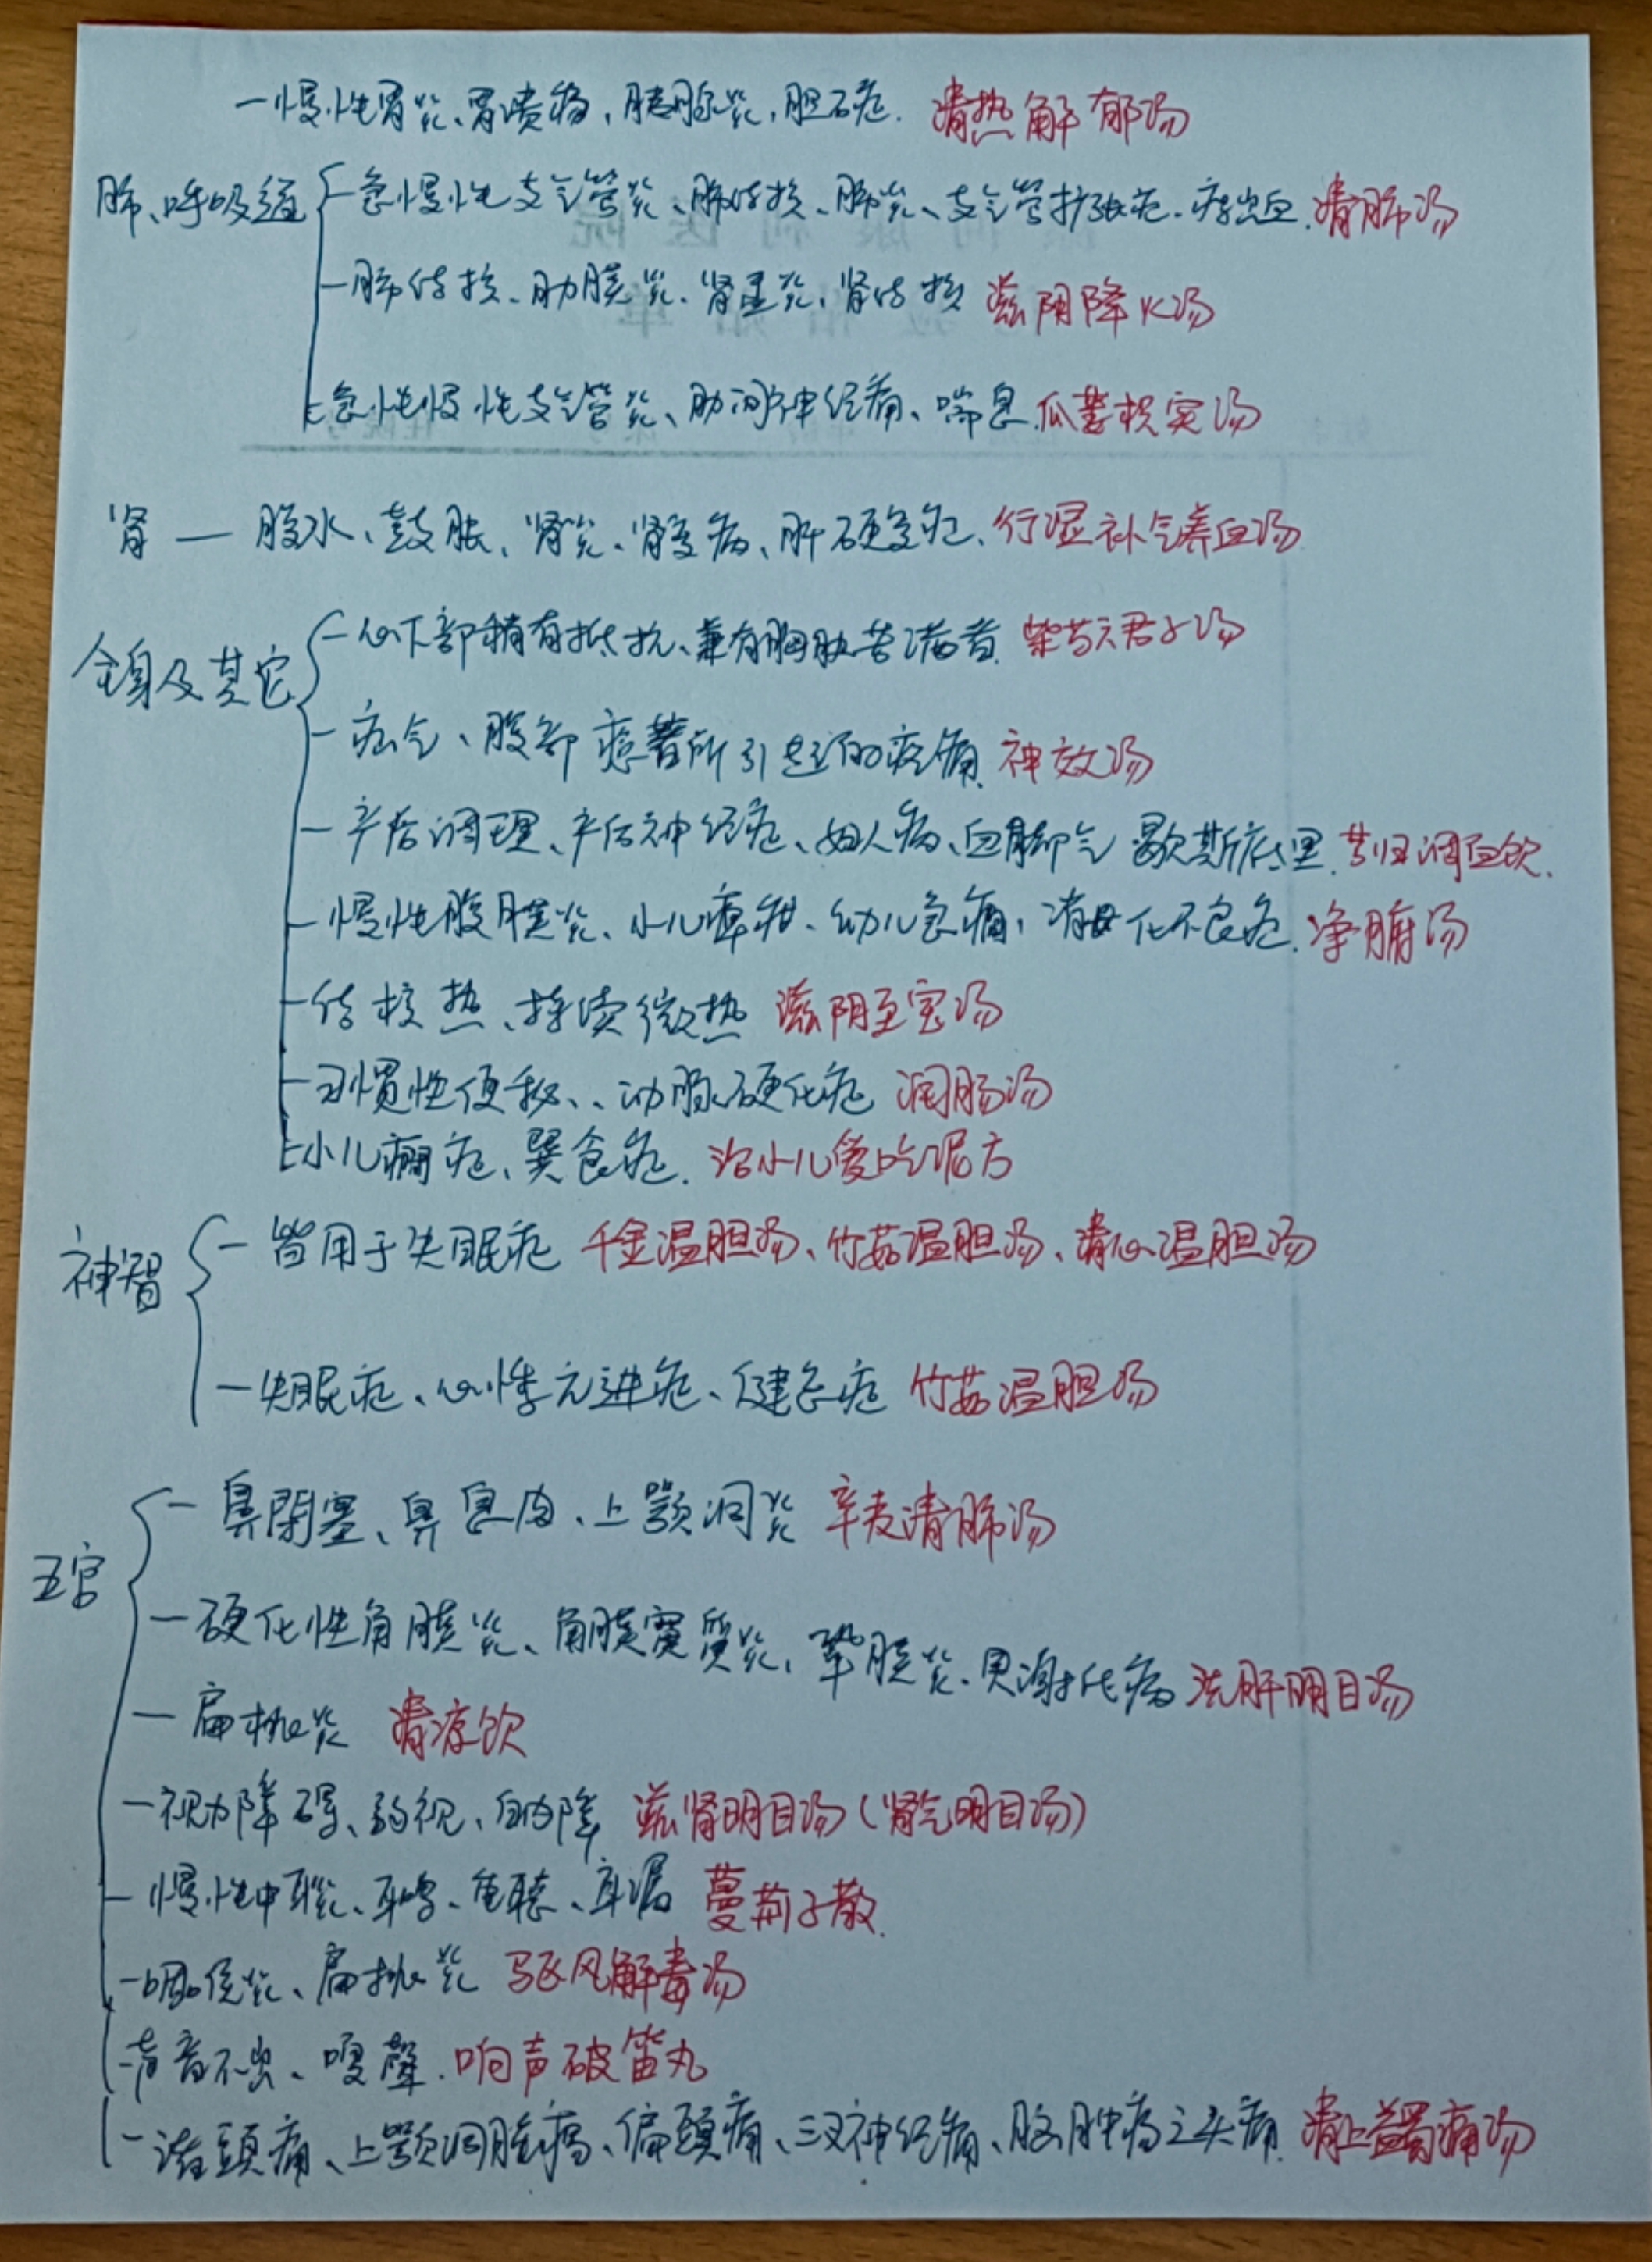 一慢性胃炎、胃溃疡、胰腺炎、胆石症. 清热解郁汤
肺、呼吸道
一急慢性支气管炎、肺结核、肺炎、支气管扩张症. 痔出血. 清肺汤
一肺结核、肋膜炎、肾盂炎、肾结核 滋阴降火汤
一急性慢性支气管炎、肋间神经痛、喘息. 瓜蒌枳实汤
肾 — 腹水、鼓胀、肾炎、肾变病、肝硬变症、行湿补气养血汤
全身及其它
一心下部稍有抵抗、兼有胸胁苦满者. 柴芍六君子汤
一疝气、腹部癒着所引起的疼痛. 神效汤
一产后调理、产后神经症、妇人病、血脚气 歇斯底里. 芎归调血饮.
一慢性腹膜炎、小儿 疳、幼儿急痫, 消化不良症. 净腑汤
一结核热、持续微热 滋阴至宝汤
一习惯性便秘、、动脉硬化症 润肠汤
一小儿癇症、異食症. 治小儿爱吃泥方
神智
一 皆用于失眠症 千金温胆汤、竹茹温胆汤、清心温胆汤
一失眠症、心悸亢进症、健忘症 竹茹温胆汤
五官
一 鼻閉塞、鼻息肉、上颚洞炎 辛夷清肺汤
一硬化性角膜炎、角膜實質炎、鞏膜炎. 洗肝明目汤
一 扁桃炎 清凉饮
一视力障碍、弱视、白内障 滋肾明目汤(肾气明目汤)
一慢性中耳炎、耳鸣、重聴、耳漏 蔓荊子散.
一咽喉炎、扁桃炎 驱风解毒汤
一声音不出、嗄聲. 响声破笛丸
一诸頭痛、上颚洞脓瘍、偏頭痛、三叉神经痛、脑肿瘍之头痛. 清上蠲痛汤